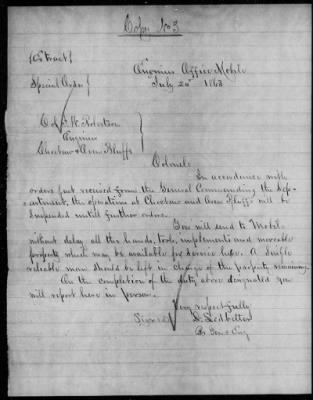 Copy No 3
(Extract)
Special Order
Engineer Office Mobile
July 20th 1863
Col. W. Robertson
Engineer
Choctaw & Oven Bluffs
Colonel:
In accordance with
orders just received from the General Commanding the Dep-
artment, the operation at Choctaw and Oven Bluffs will be
suspended until further orders.
You will send to Mobile
without delay all the hands, tools, implements and moveable
property which may be available for service here. A single
reliable man should be left in charge of the property remaining.
On the completion of the duty above designated you
will report here in person.
Very respectfully
Signed D. Leadbetter
B. Gen & Eng